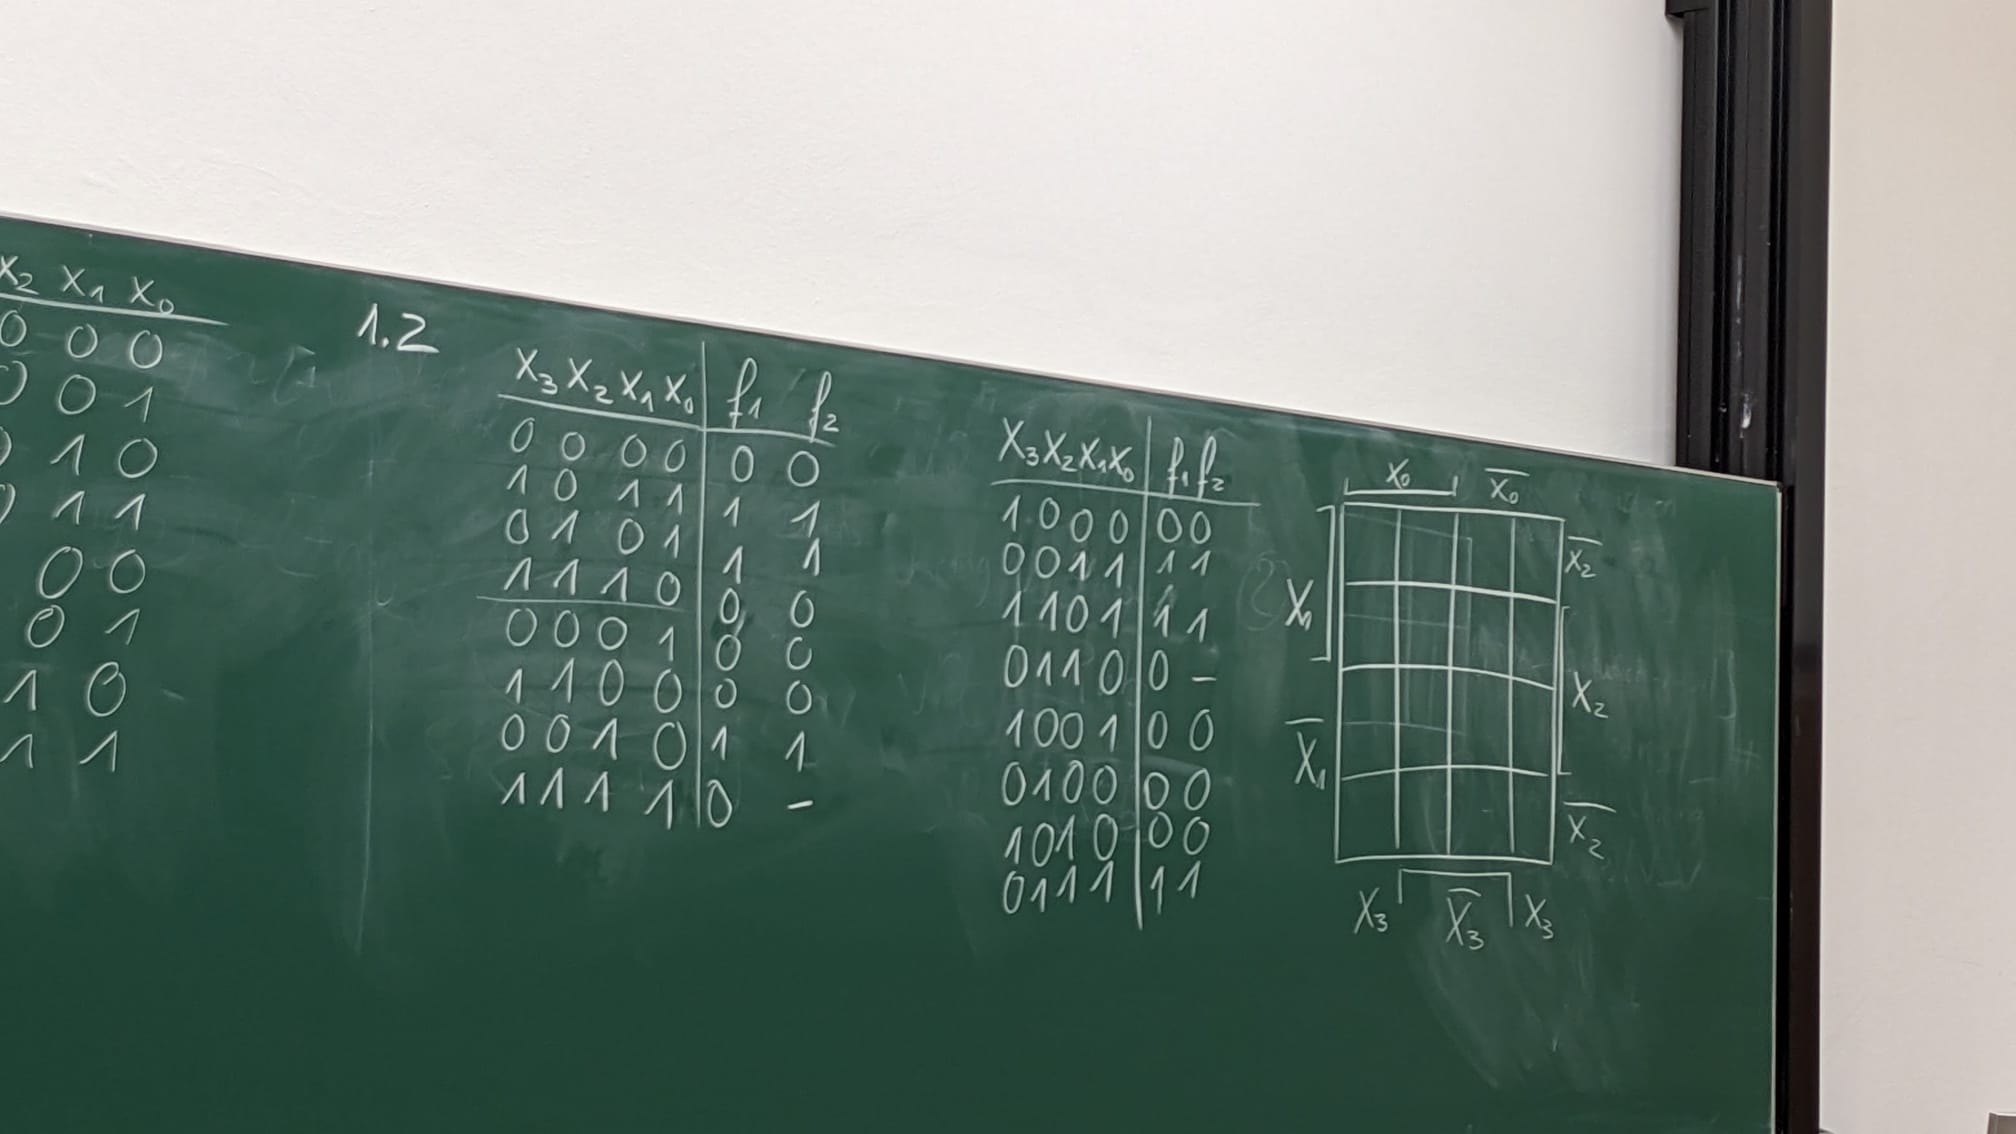 X₂ X₁ X₀
0 0 0
0 0 1
0 1 0
0 1 1
0 0
0 1
1 0
1 1
1.2
X₃ X₂ X₁ X₀ f₁ f₂
0 0 0 0 0 0
1 0 1 1 1 1
0 1 0 1 1 1
1 1 1 0 0 0
0 0 0 1 0 0
1 1 0 0 0 0
0 0 1 0 1 1
1 1 1 1 0 –
X₃ X₂ X₁ X₀ f₁ f₂
1 0 0 0 0 0
0 0 1 1 1 1
1 1 0 1 1 1
0 1 1 0 0 –
1 0 0 1 0 0
0 1 0 0 0 0
1 0 1 0 0 0
0 1 1 1 1 1
X₀ X̅₀
X̅₂
X₁
X₂
X̅₁
X̅₂
X₃ X̅₃ X₃